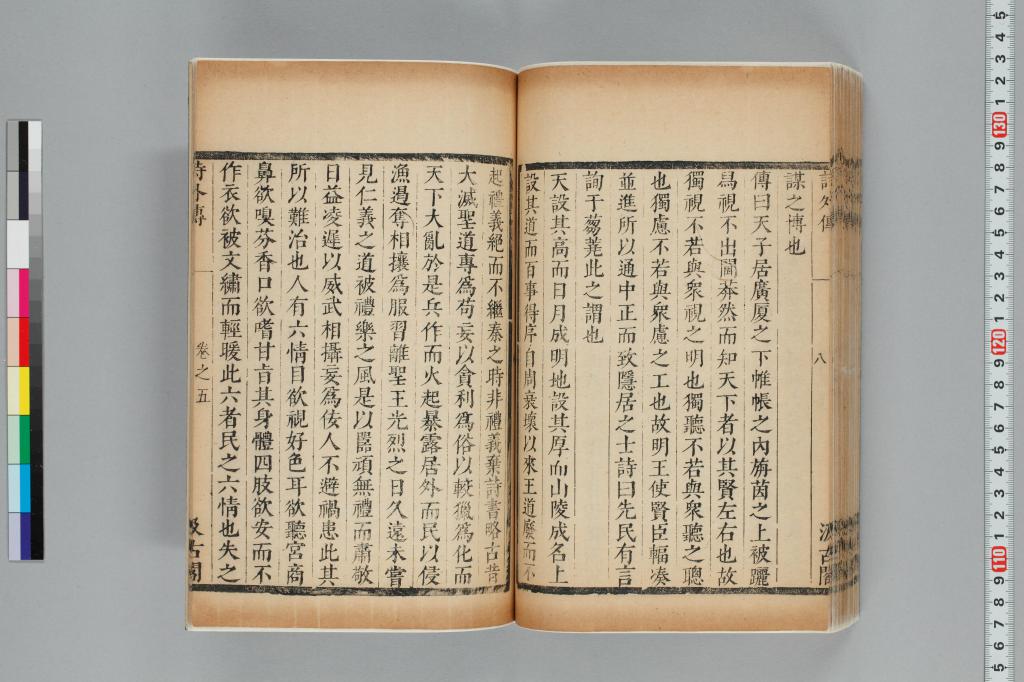 詩外傳 八 汲古閣
謀之博也
傳曰天子居廣厦之下帷帳之內旃茵之上被躧
舄視不出閫莽然而知天下者以其賢左右也故
獨視不若與衆視之明也獨聽不若與衆聽之聰
也獨慮不若與衆慮之工也故明王使賢臣輻凑
並進所以通中正而致隱居之士詩曰先民有言
詢于芻蕘此之謂也
天設其高而日月成明地設其厚而山陵成名上
設其道而百事得序自周衰壞以來王道廢而不
起禮義絕而不繼秦之時非禮義棄詩書略古昔
大滅聖道專爲苟妄以貪利爲俗以較獵爲化而
天下大亂於是兵作而火起暴露居外而民以侵
漁遏奪相攘爲服習離聖王光烈之日久遠未嘗
見仁義之道被禮樂之風是以嚚頑無禮而肅敬
日益凌遲以威武相攝妄爲佞人不避禍患此其
所以難治也人有六情目欲視好色耳欲聽宮商
鼻欲嗅芬香口欲嗜甘旨其身體四肢欲安而不
作衣欲被文繡而輕暖此六者民之六情也失之
詩外傳 卷之五 汲古閣
5
4
3
2
1
130
9
8
7
6
5
4
3
2
1
120
9
8
7
6
5
4
3
2
1
110
9
8
7
6
5